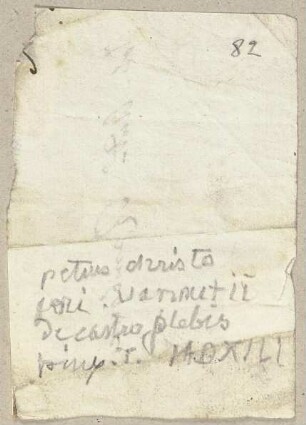 82
petrus christo
fori. Vannutii
de castro plebis
pinx.T. MDXIII